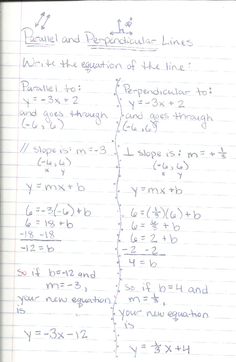 Parallel and Perpendicular Lines
Write the equation of the line:
Parallel to:
y = -3x + 2
and goes through
(-6, 6)
// slope is: m = -3
(-6, 6)
x y
y = mx + b
6 = -3(-6) + b
6 = 18 + b
-18 -18
-12 = b
so if b = -12 and
m = -3,
your new equation
is
y = -3x - 12
Perpendicular to:
y = -3x + 2
and goes through
(-6, 6)
⊥ slope is: m = + 1/3
(-6, 6)
x y
y = mx + b
6 = (1/3)(6) + b
6 = 6/3 + b
6 = 2 + b
-2 -2
4 = b
so if b = 4 and
m = 1/3,
your new equation
is
y = 1/3 x + 4